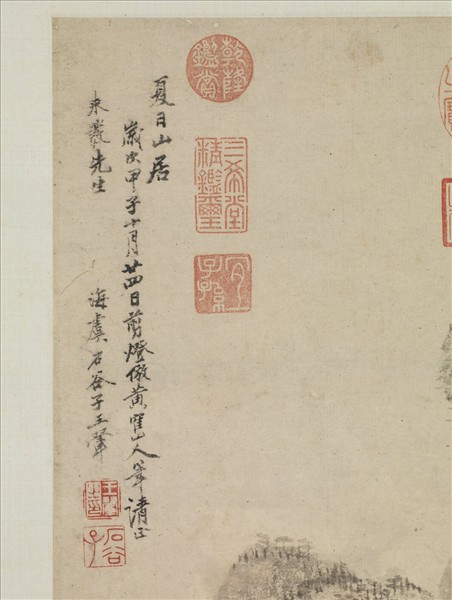 夏日山居
歲次甲子十月廿四日剪燈倣黃隺山人筆請正
來 先生
海虞石谷子王翬
乾隆鑑賞
三希堂精鑑璽
宜子孫
王翬之印
石谷子